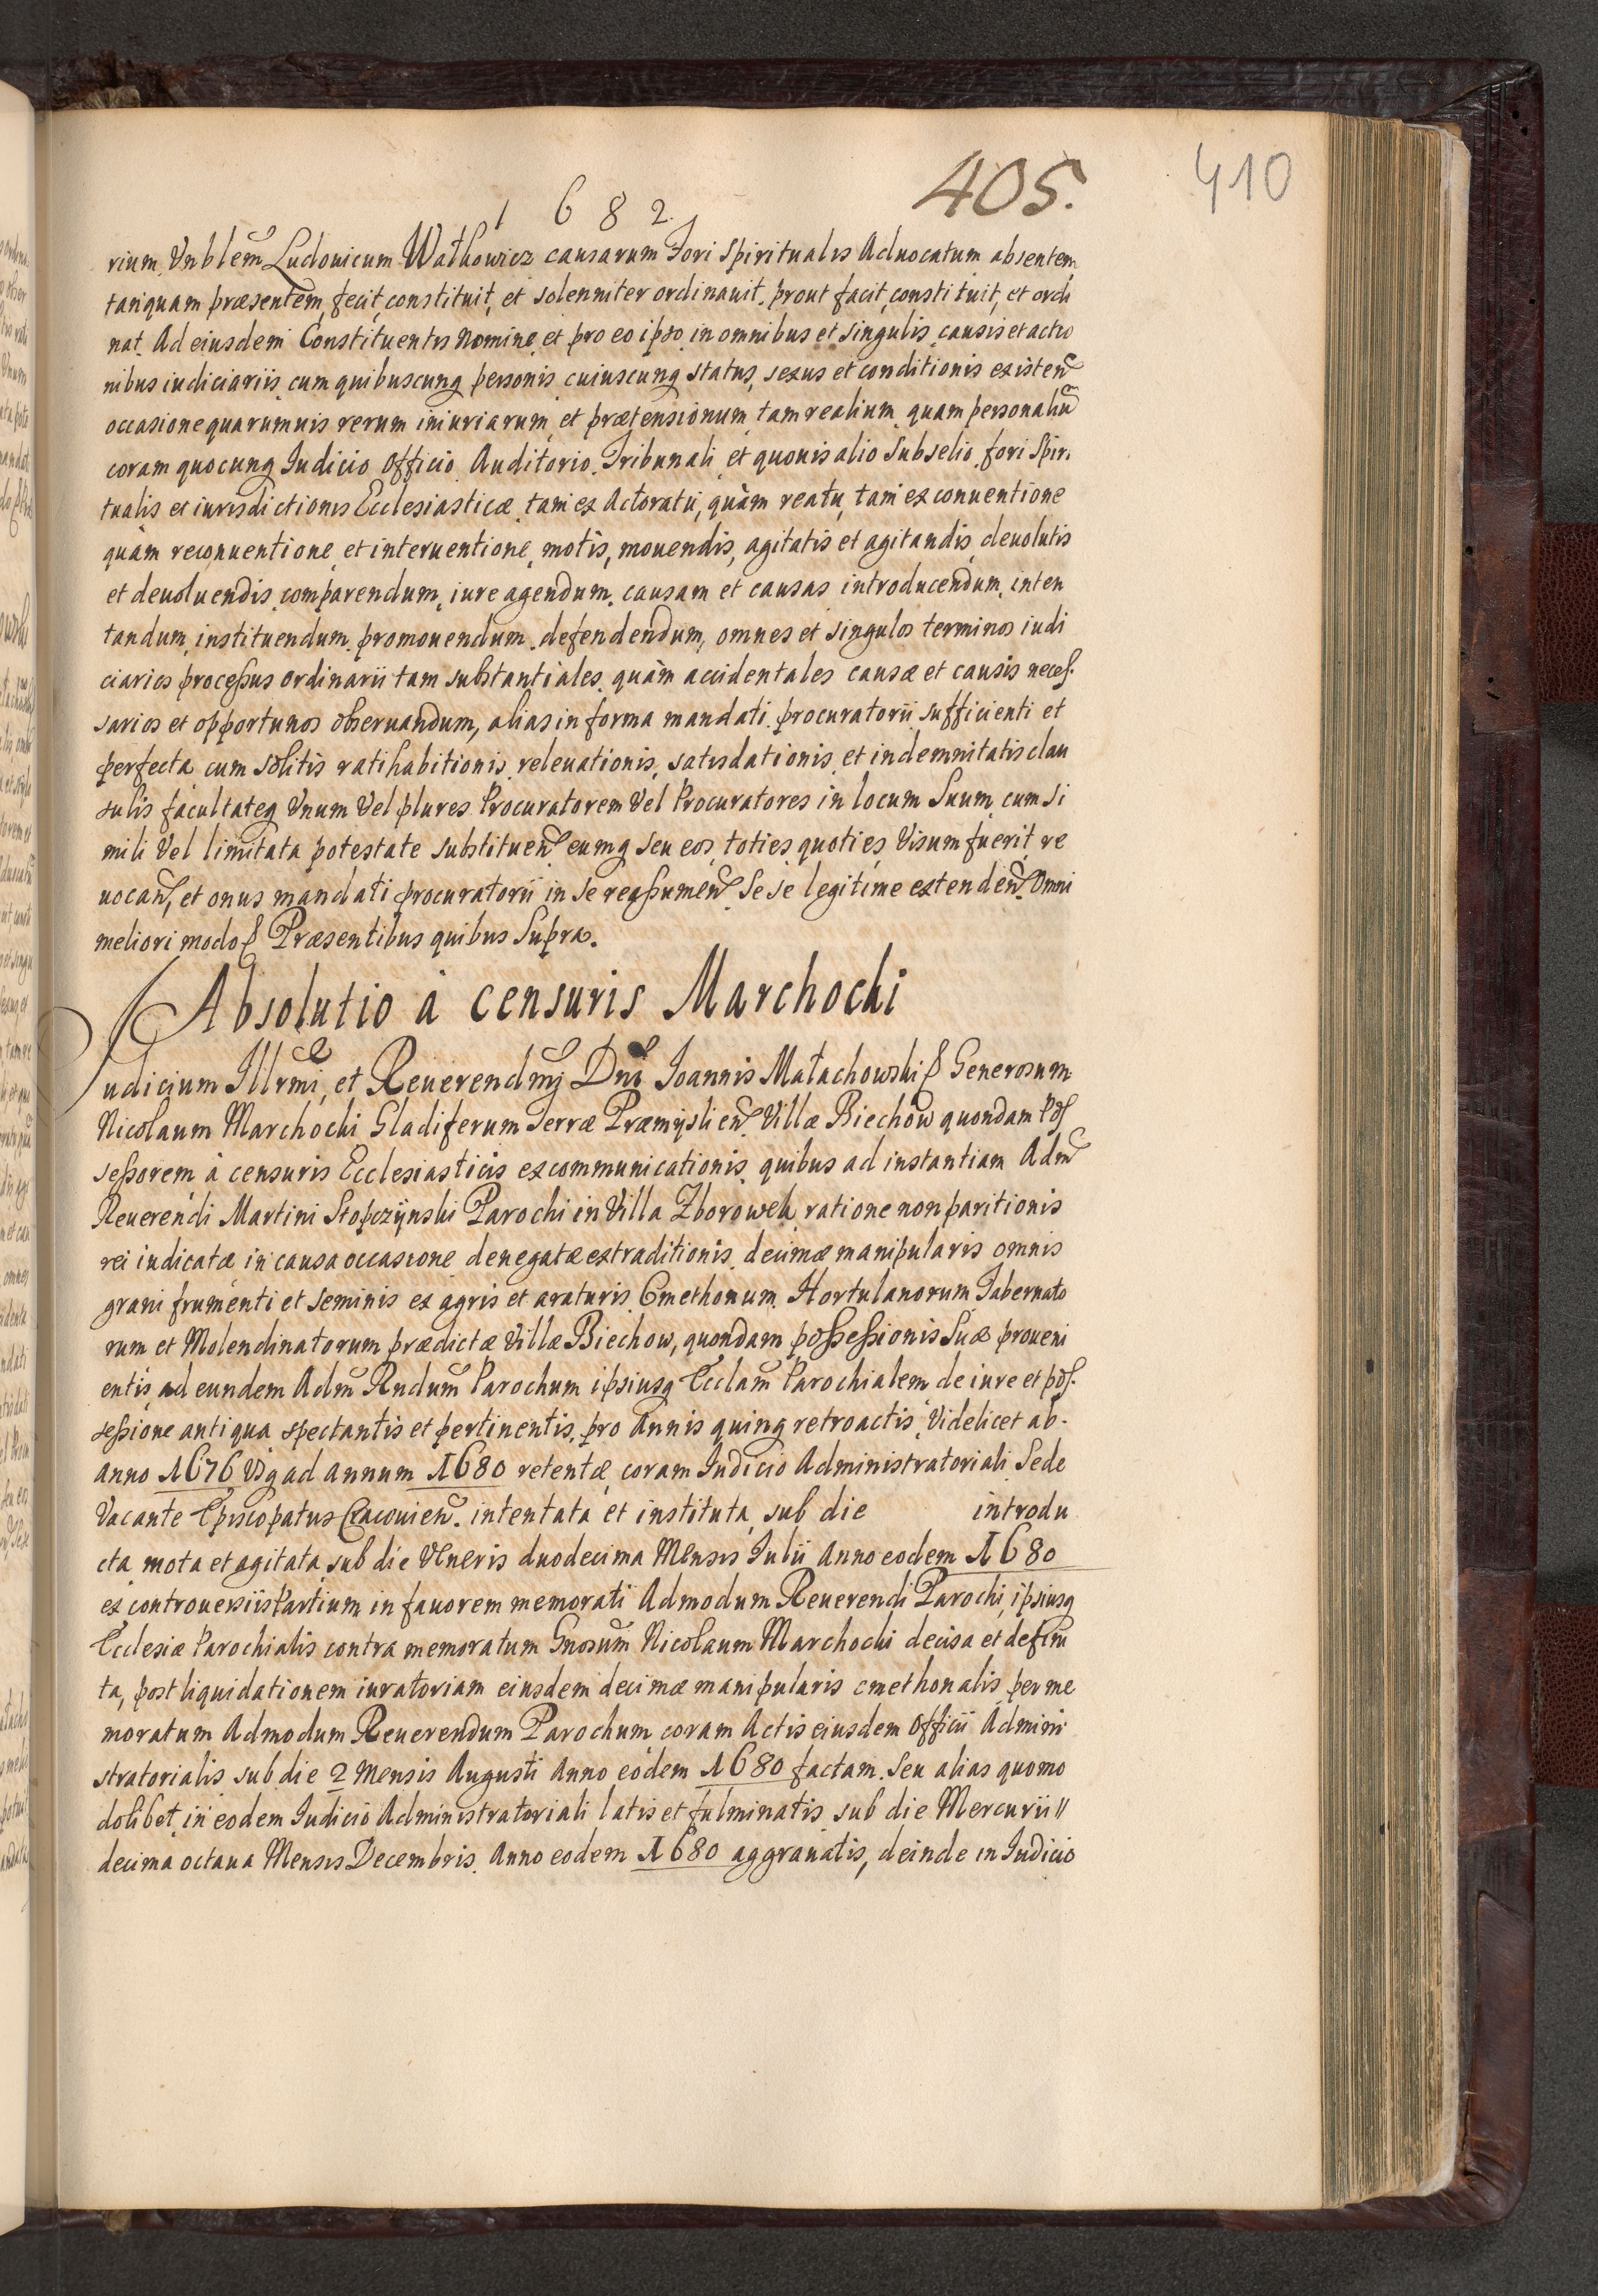 405.
410
1 6 8 2.
rium, Vnblem̄ Ludouicum Wałkowicz causarum Fori Spiritualis Aduocatum absentem
tanquam præsentem, fecit, constituit, et solenniter ordinauit, prout facit, constituit, et ordi
nat. Ad eiusdem Constituentis Nomine, et pro eo ipso, in omnibus et singulis, causis et actio
nibus iudiciariis, cum quibuscunq personis, cuiuscunq status, sexus et conditionis existen̄
occasione quarumuis rerum iniuriarum, et prætensionum, tam realium, quam personaliū
coram quocunq Iudicio, Officio, Auditorio, Tribunali, et quouis alio Subselio, fori Spiri
tualis et iurisdictionis Ecclesiasticæ, tam ex Actoratu, quàm reatu, tam ex conuentione
quàm reconuentione, et interuentione, motis, mouendis, agitatis et agitandis, deuolutis
et deuoluendis, comparendum, iure agendum, causam et causas introducendum, inten
tandum, instituendum, promouendum, defendendum, omnes et singulos terminos iudi
ciarios processus ordinarii tam substantiales, quàm accidentales causæ et causis neces
sarios et opportunos obseruandum, alias in forma mandati procuratorii sufficienti et
perfecta cum solitis ratihabitionis, releuationis, satisdationis, et indemnitatis clau
sulis facultateq Vnum Vel plures Procuratorem Vel Procuratores in locum Suum, cum si
mili Vel limitata potestate substituen̄ eumq seu eos, toties quoties Visum fuerit, re
uocan̄, et onus mandati procuratorii in se reassumen̄. Se se legitime extenden̄. Omni
meliori modo Præsentibus quibus Supra.
Absolutio à censuris Marchocki
Iudicium Illrmi, et Reuerendmi Dni Ioannis Małachowski Generosum
Nicolaum Marchocki Gladiferum Terræ Præmyslien̄. Villæ Biechow quondam Pos
sessorem à censuris Ecclesiasticis excommunicationis, quibus ad instantiam Adm̄
Reuerendi Martini Stopczynski Parochi in Villa Zborowek, ratione non paritionis
rei iudicatæ in causa occasione denegatæ extraditionis, decimæ manipularis omnis
grani frumenti et seminis ex agris et araturis Cmethonum, Hortulanorum, Tabernato
rum et Molendinatorum prædictæ Villæ Biechow, quondam possessionis Suæ proueni
entis, ad eundem Adm̄ Rndum̄ Parochum ipsiusq Ecclam̄ Parochialem de iure et pos
sessione antiqua spectantis et pertinentis, pro Annis quinq retroactis, Videlicet ab
anno 1676 Vsq ad annum 1680 retentæ, coram Iudicio Administratoriali Sede
Vacante Episcopatus Cracouien̄. intentata et instituta, sub die introdu
cta, mota et agitata, sub die Veneris duodecima Mensis Iulii Anno eodem 1680
ex controuersiis Partium in fauorem memorati Admodum Reuerendi Parochi, ipsiusq
Ecclesiæ Parochialis contra memoratum Gnosum̄ Nicolaum Marchocki decisa et defini
ta, post liquidationem iuratoriam eiusdem decimæ manipularis cmethonalis, per me
moratum Admodum Reuerendum Parochum, coram Actis eiusdem Officii Admini
stratorialis sub die 2 Mensis Augusti Anno eodem 1680 factam. Seu alias quomo
dolibet, in eodem Iudicio Administratoriali latis et fulminatis, sub die Mercurii //
decima octaua Mensis Decembris, Anno eodem 1680 aggrauatis, deinde in Iudicio